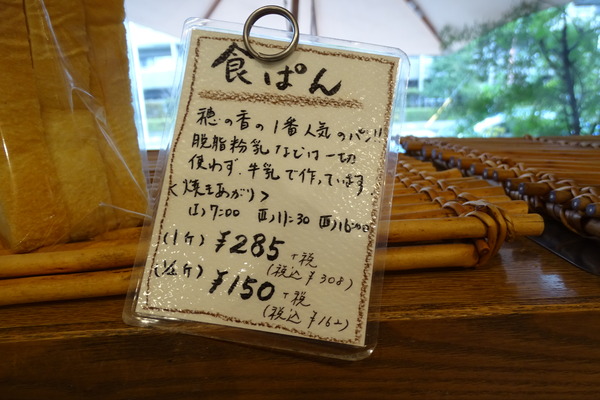 食ぱん
穂の香の1番人気のパン!!
脱脂粉乳などは一切
使わず、牛乳で作っています
<焼きあがり>
(山)7:00 (四)11:30 (四)16:00
(1斤) ¥285 +税
(税込 ¥308)
(½斤) ¥150 +税
(税込 ¥162)